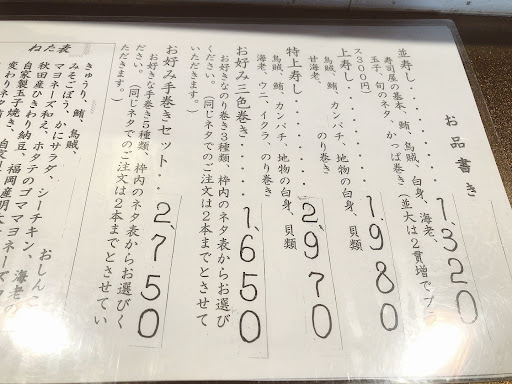 お品書き
並寿し・・・・・・・・・・1,320
寿司屋の基本、鮪、烏賊、白身、海老、
玉子、旬のネタ、かっぱ巻き(並大は2貫増でプラ
ス300円)
上寿し・・・・・・・・・・1,980
烏賊、鮪、カンパチ、地物の白身、貝類
甘海老、のり巻き
特上寿し・・・・・・・・・2,970
烏賊、鮪、カンパチ、地物の白身、貝類
海老、ウニ、イクラ、のり巻き
お好み三色巻き・・・1,650
お好きなのり巻き3種類、枠内のネタ表からお選び
ください。(同じネタでのご注文は2本までとさせて
いただきます。)
お好み手巻きセット・・・2,750
お好きな手巻き5種類、枠内のネタ表からお選びく
ださい。(同じネタでのご注文は2本までとさせてい
ただきます。)
ねた表
きゅうり、鮪、烏賊、おしんこ
みそごぼう、かにサラダ、シーチキン、海老の
マヨネーズ和え、ホタテのゴママヨネーズ
秋田産ひきわり納豆、福岡産明太
自家製玉子焼き、自家
変わりネタ